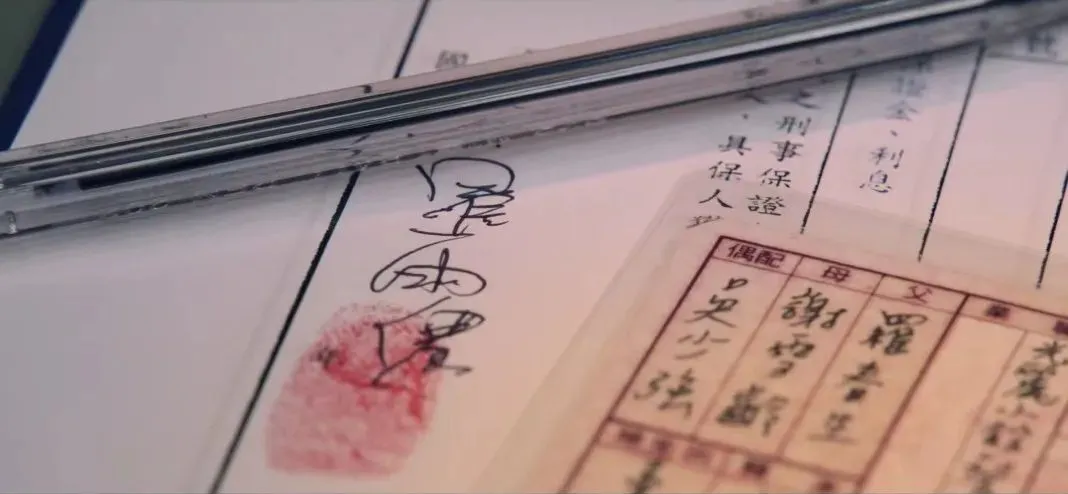 證金、利息
刑事保證
、具保人
國
羅雨儂
父
羅春生
母
謝雪齡
配偶
吳少強